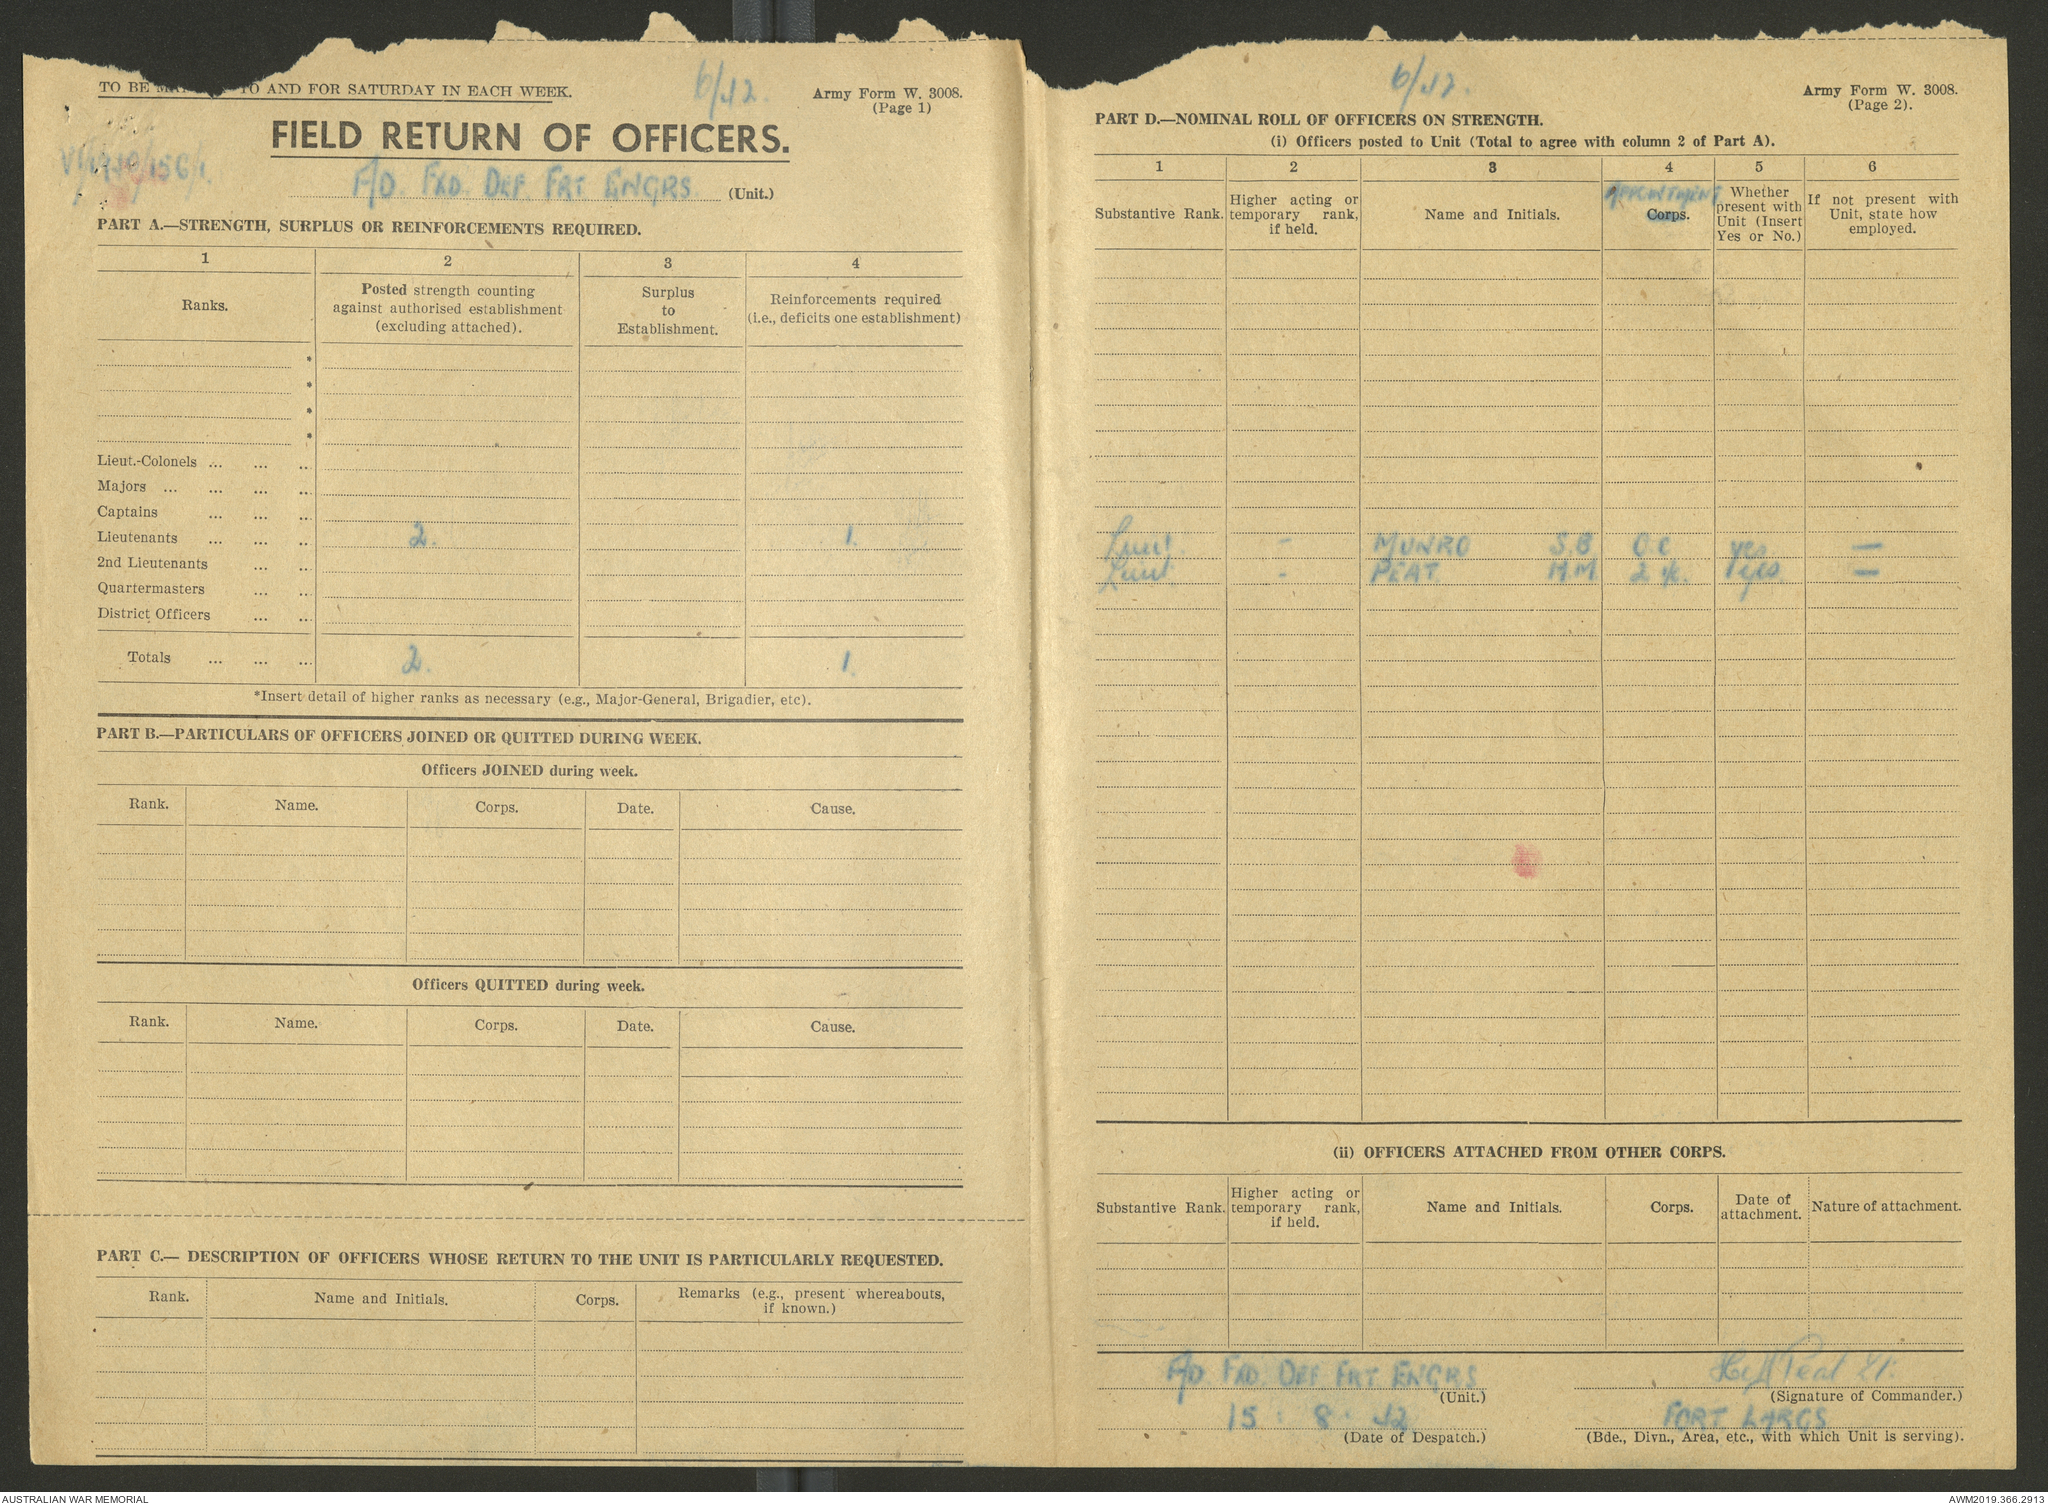 TO BE MA TO AND FOR SATURDAY IN EACH WEEK.
6/42.
Army Form W. 3008.
(Page 1)
FIELD RETURN OF OFFICERS.
F/D. FXD. DEF. FRT ENGRS (Unit.)
PART A.—STRENGTH, SURPLUS OR REINFORCEMENTS REQUIRED.
1 2 3 4
Ranks.
Posted strength counting against authorised establishment (excluding attached).
Surplus to Establishment.
Reinforcements required (i.e., deficits one establishment)
*
*
*
*
Lieut.-Colonels ... ... ..
Majors ... ... ... ...
Captains ... ... ...
Lieutenants ... ... .. 2. 1.
2nd Lieutenants ... ...
Quartermasters ... ...
District Officers ... ...
Totals ... ... ... 2. 1.
*Insert detail of higher ranks as necessary (e.g., Major-General, Brigadier, etc).
PART B.—PARTICULARS OF OFFICERS JOINED OR QUITTED DURING WEEK.
Officers JOINED during week.
Rank. Name. Corps. Date. Cause.
Officers QUITTED during week.
Rank. Name. Corps. Date. Cause.
PART C.— DESCRIPTION OF OFFICERS WHOSE RETURN TO THE UNIT IS PARTICULARLY REQUESTED.
Rank. Name and Initials. Corps. Remarks (e.g., present whereabouts, if known.)
6/42.
Army Form W. 3008.
(Page 2).
PART D.—NOMINAL ROLL OF OFFICERS ON STRENGTH.
(i) Officers posted to Unit (Total to agree with column 2 of Part A).
1 2 3 4 5 6
Substantive Rank.
Higher acting or temporary rank, if held.
Name and Initials.
APPOINTMENT
Corps.
Whether present with Unit (Insert Yes or No.)
If not present with Unit, state how employed.
Lieut. - MUNRO S.B. O.C yes —
Lieut - PEAT H.M. 2 i/c. yes —
(ii) OFFICERS ATTACHED FROM OTHER CORPS.
Substantive Rank.
Higher acting or temporary rank, if held.
Name and Initials.
Corps.
Date of attachment.
Nature of attachment.
F/D. FXD. DEF FRT ENGRS
(Unit.)
Peat Lt.
(Signature of Commander.)
15 . 8 . 42
(Date of Despatch.)
FORT LARGS
(Bde., Divn., Area, etc., with which Unit is serving).
AUSTRALIAN WAR MEMORIAL
AWM2019.366.2913